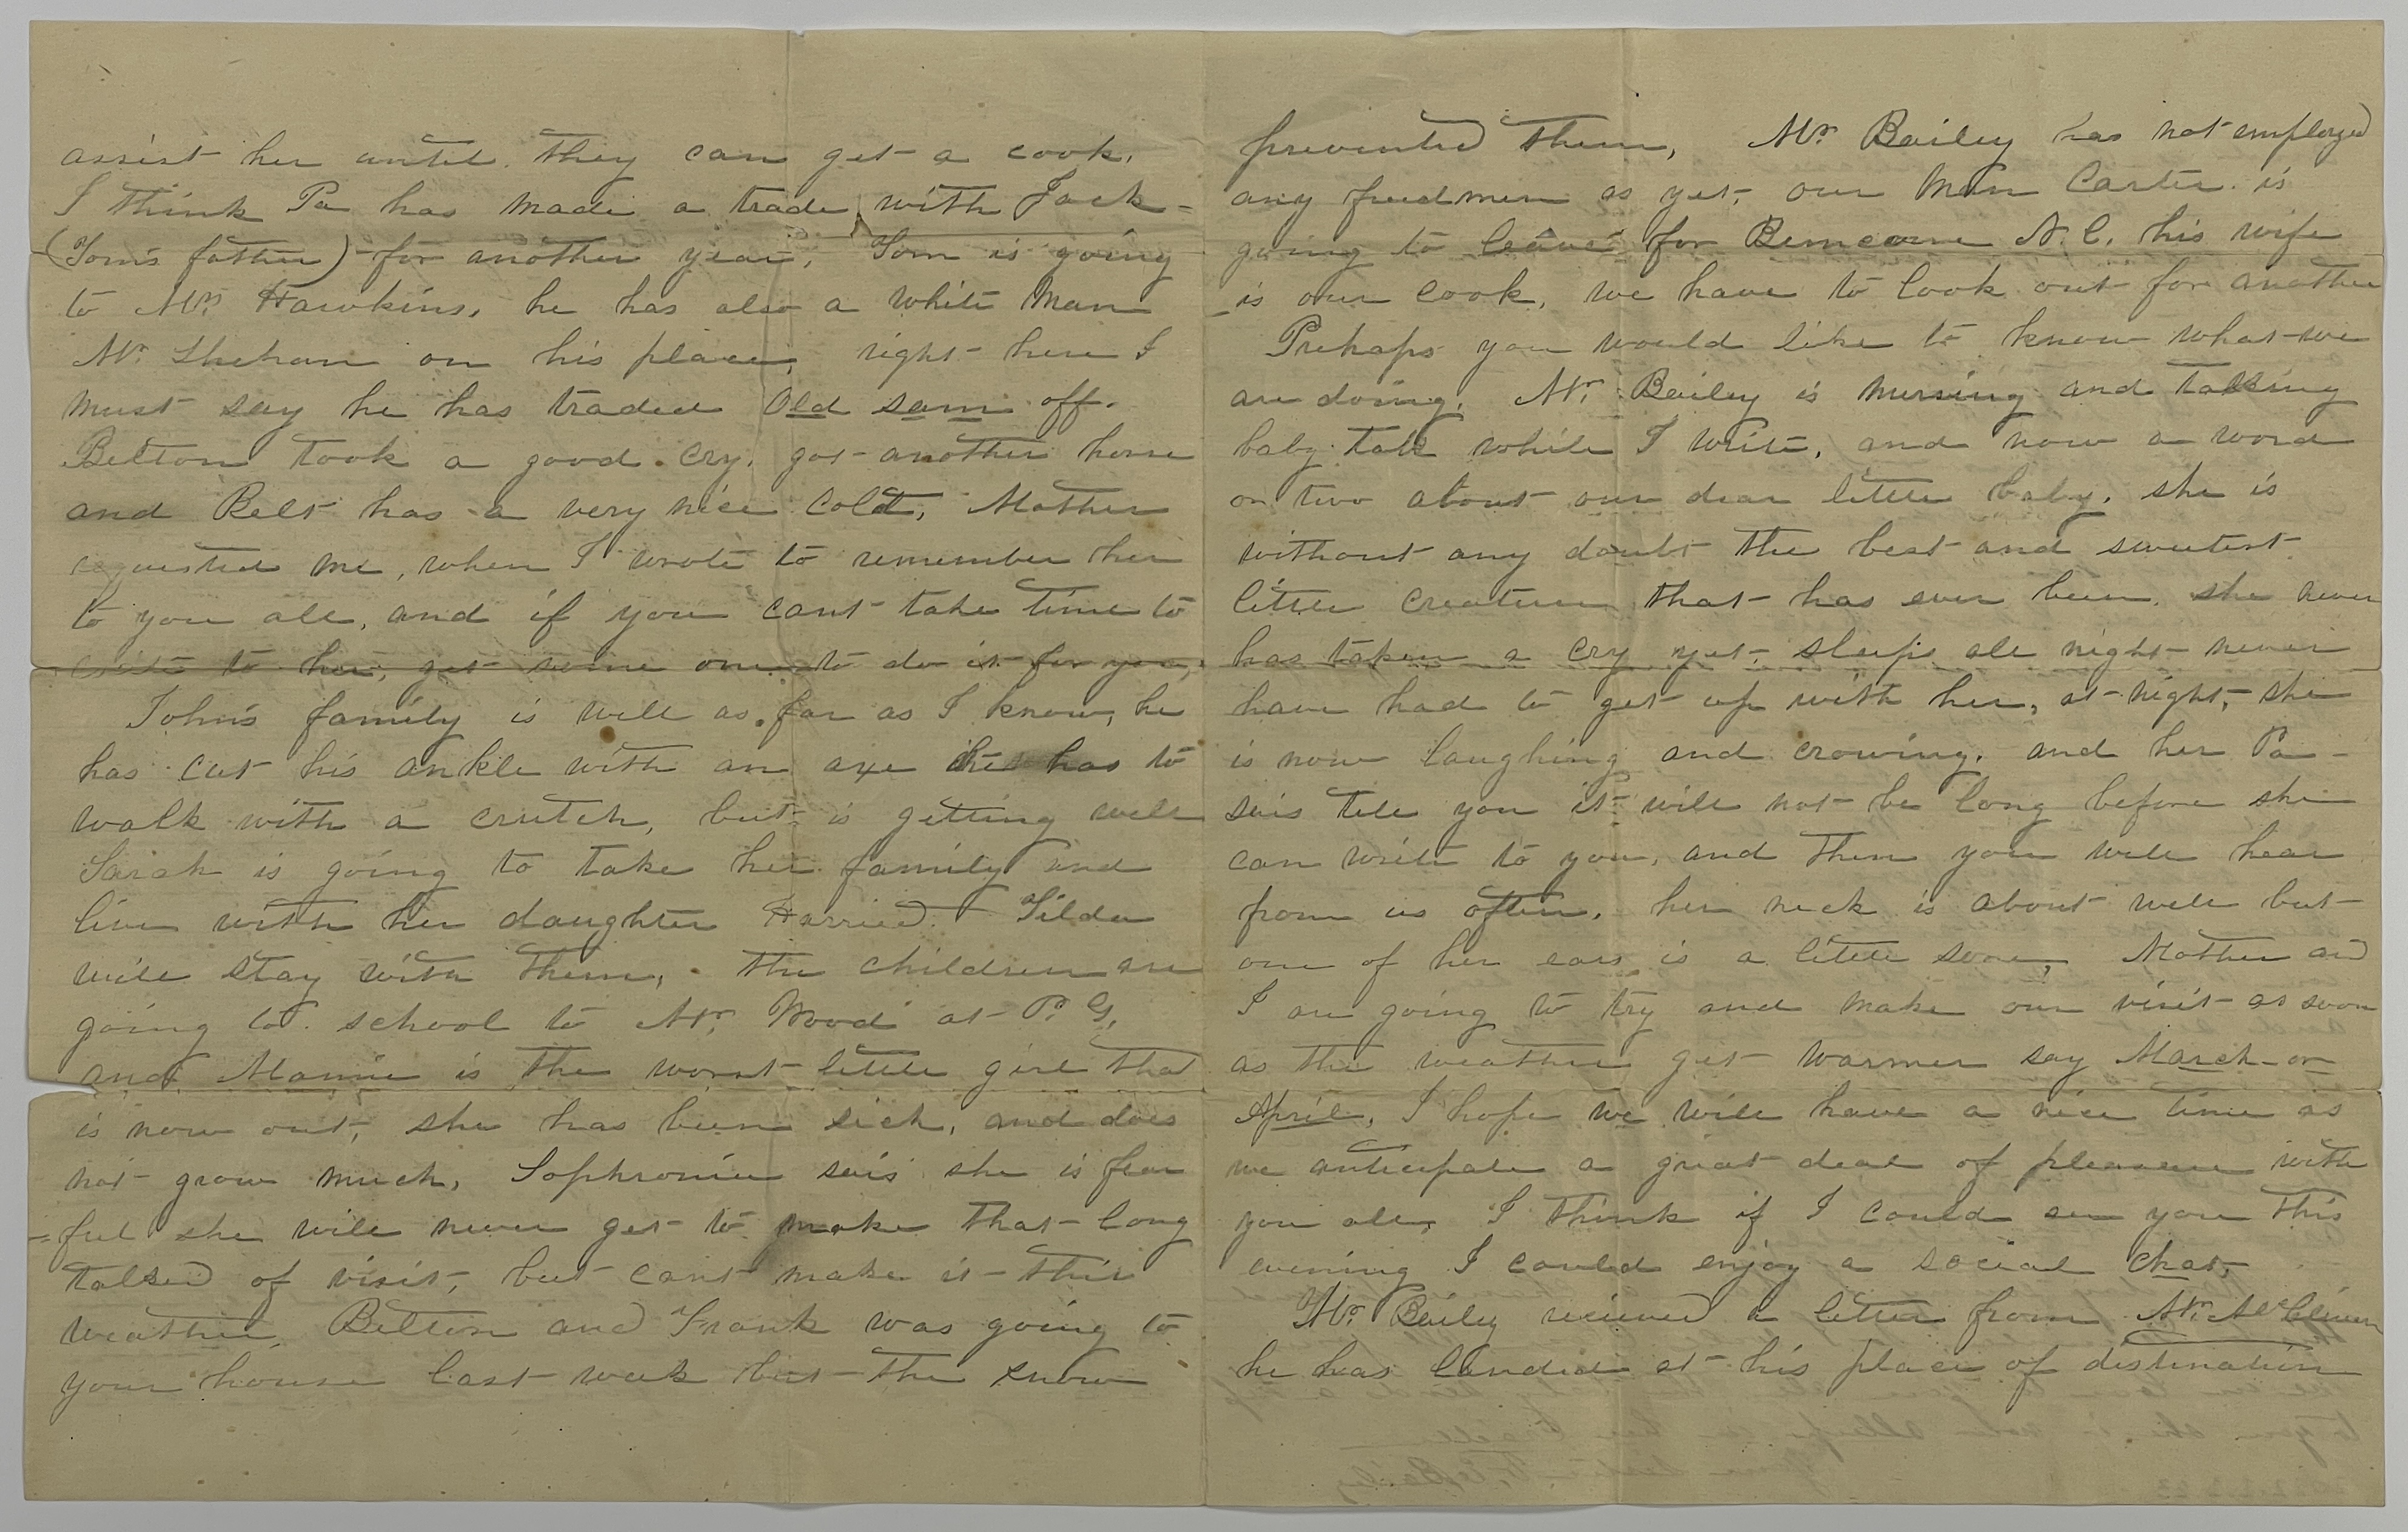 assist her until they can get a cook.
I think Pa has made a trade with Jack=
(Tom's father) for another year, Tom is going
to Mr. Hawkins, he has also a white man
Mr. Shehan on his place, right here I
must say he has traded Old Sam off.
Belton took a good cry, got another horse
and Belt has a very nice Colt, Mother
requested me, when I wrote to remember her
to you all, and if you cant take time to
write to her, get some one to do it for you,
John's family is well as far as I know, he
has cut his ankle with an axe has to
walk with a crutch, but is getting well
Sarah is going to take her family and
live with her daughter Harried. Tilda
will stay with them, the children are
going to school to Mr. Wood at P. G.
and Mamie is the worst little girl that
is now out, she has been sick, and does
not grow much, Sophronia sais she is fear
=ful she will never get to make that long
talked of visit, but cant make it this
weather, Belton and Frank was going to
your house last week but the snow
prevented them, Mr. Bailey has not employed
any freedmen as yet, our man Carter is
going to leave for N. C. his wife
is our cook, we have to look out for another
Prehaps you would like to know what we
are doing, Mr. Bailey is nursing and talking
baby talk while I write, and now a word
or two about our dear little baby, she is
without any doubt the best and sweetest
little creature that has ever been, she never
has taken a cry yet, sleeps all night never
have had to get up with her, at night, she
is now laughing and crowing, and her Pa-
sais tell you it will not be long before she
can write to you, and then you will hear
from us often, her neck is about well but
one of her ears is a little sore, Mother and
I are going to try and make our visit as soon
as the weather get warmer say March or
April, I hope we will have a nice time as
we anticipate a great deal of pleasure with
you all, I think if I could see you this
evening I could enjoy a social chat,
Mr. Bailey recieved a letter from Mr.
he has landed at his place of distination